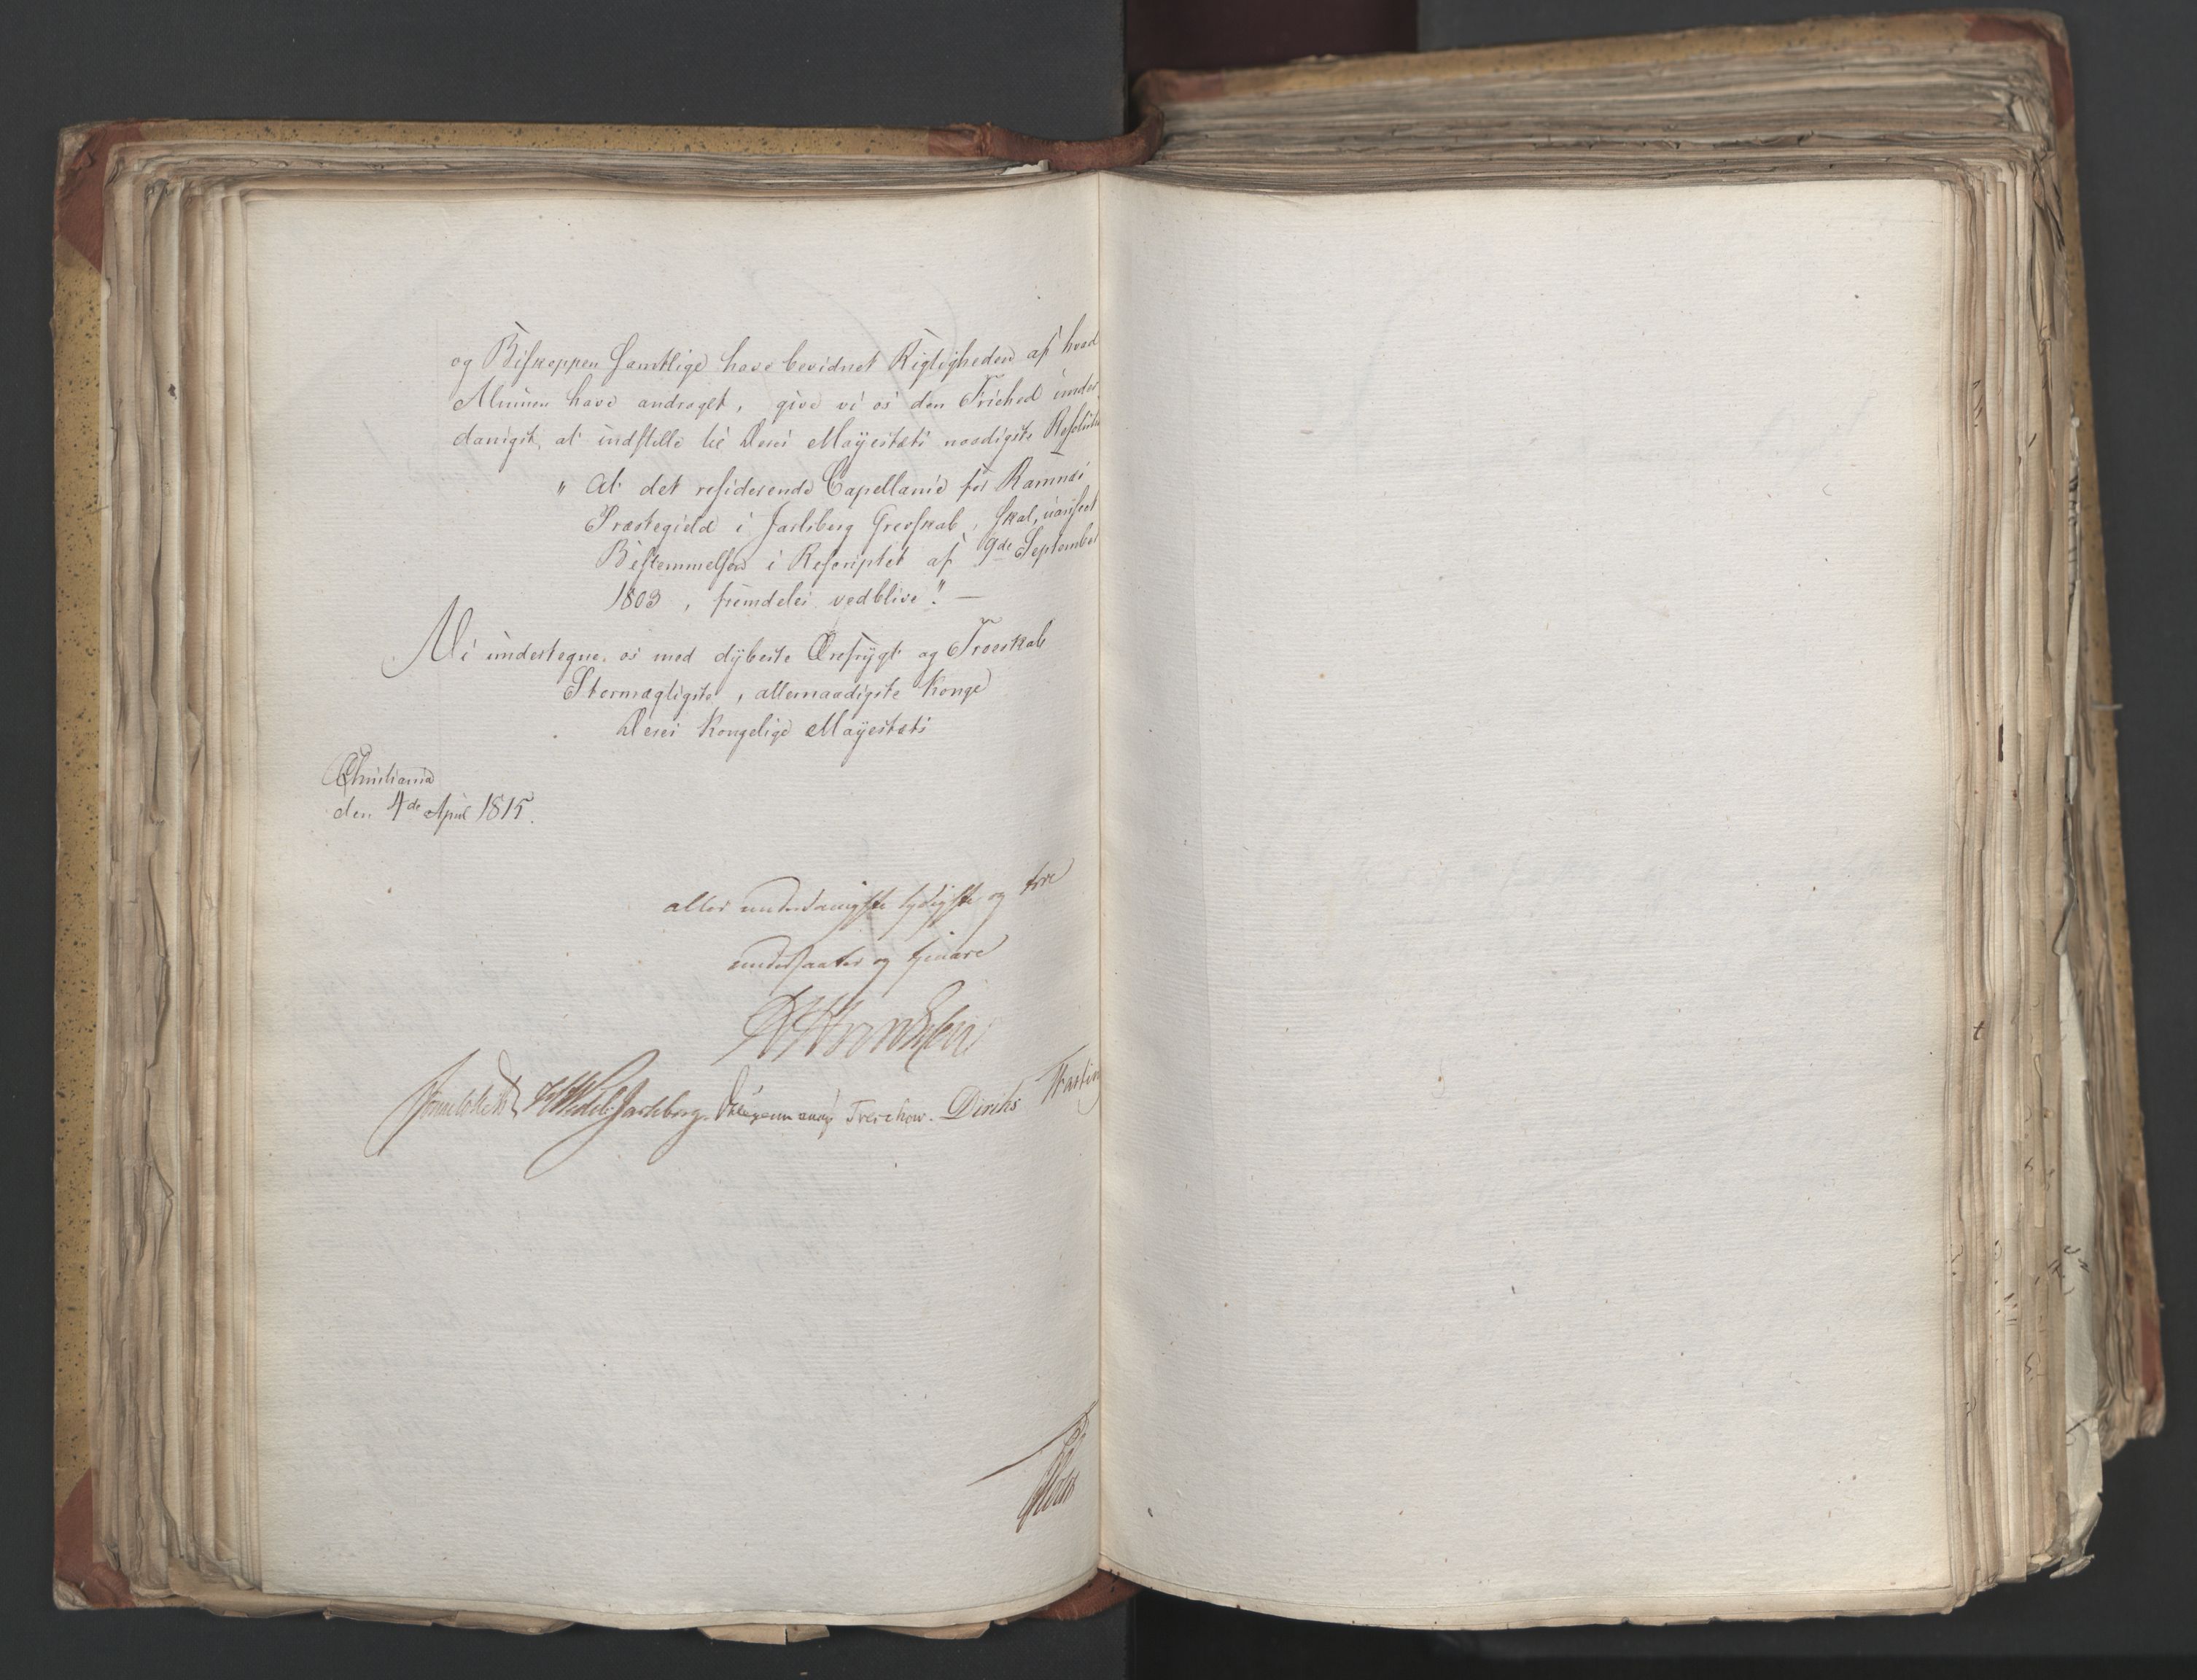 og Biskoppen samtlige have bevidnet Rigtigheden af hvad
Almuen have andraget, give vi os den Friehed under
danigst, at indstille til Deres Mayestæts naadigste Resolutio
" At det residerende Capellanie for Ramnæs
Præstegield i Jarlsberg Grevskab, skal, uanseet
Bestemmelsen i Rescriptet af 9de September
1803, fremdeles vedblive". —
Vi undertegne os med dybeste Ærefrygt og Troeskab
Stormægtigste, allernaadigste Konge
Deres Kongelige Mayestæts
Christiania
den 4de April 1815.
aller underdanigste lydigste og troe
undersaatter og tjenare
Sommerhielm HWedel-Jarlsberg. Treschow. Diriks Fasting